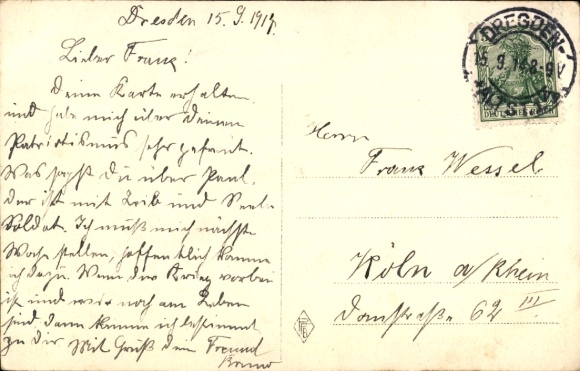 Dresden 15.9.1914.
Lieber Franz!
Deine Karte erhalten
und habe mich über Deinen
Patriotismus sehr gefreut.
Was sagst Du über Paul,
der ist mit Leib und Seel
Soldat. Ich muß mich nächste
Woche stellen, hoffentlich komme
ich dazu. Wenn der Krieg vorbei
ist und wir noch am Leben
sind dann komme ich bestimmt
zu Dir Mit Gruß dein Freund
Bruno
DRESDEN-
15.9.14.8-9V
ALTST.
DEUTSCHES REICH
Herrn
Franz Wessel
Köln a/Rhein
Domstraße 62 III.